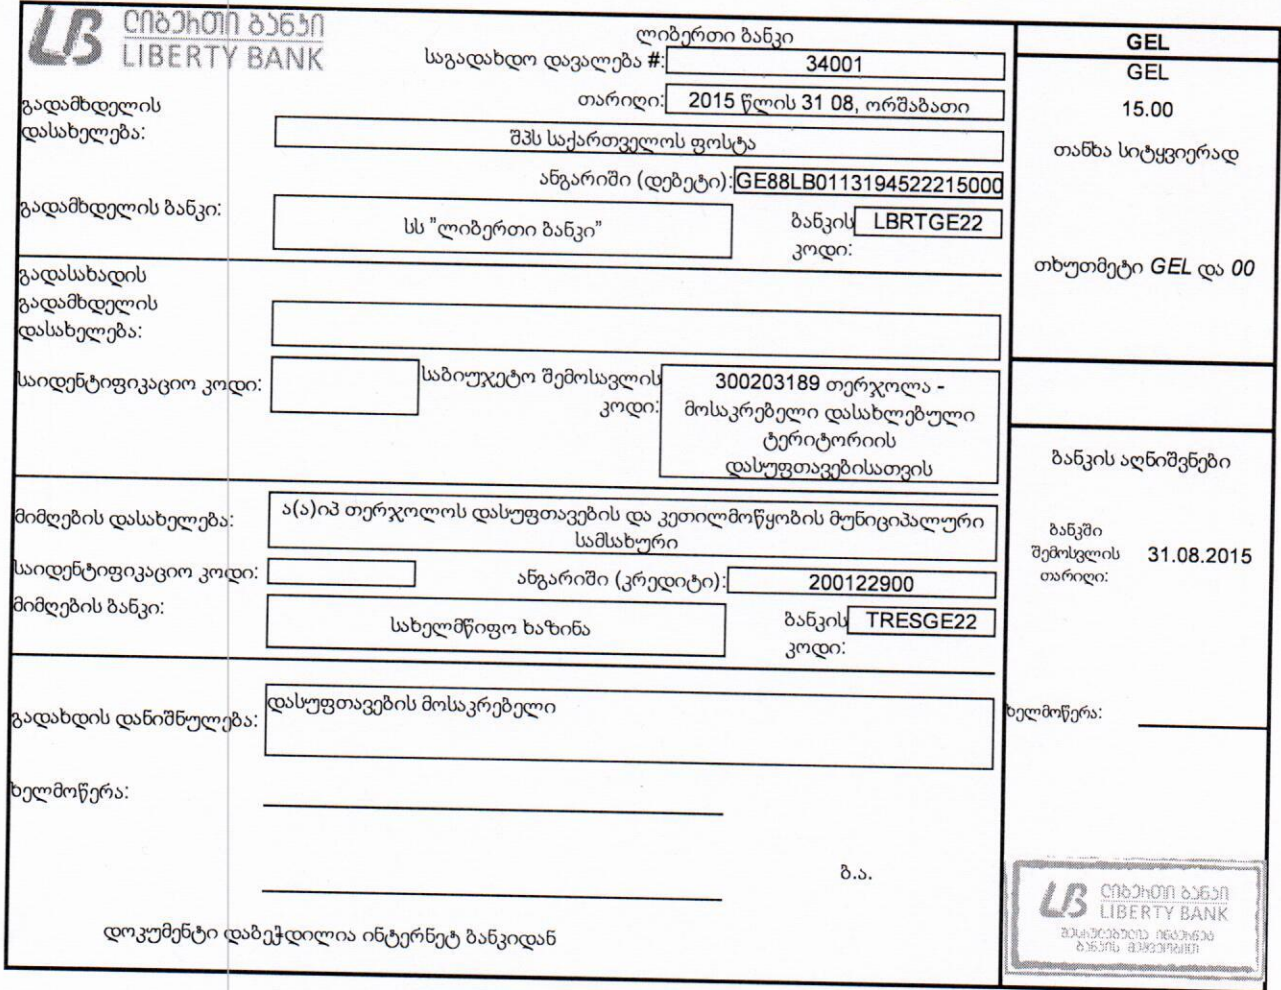 ლიბერთი ბანკი
LIBERTY BANK
ლიბერთი ბანკი
საგადახდო დავალება #: 34001
თარიღი: 2015 წლის 31 08, ორშაბათი
გადამხდელის
დასახელება:
შპს საქართველოს ფოსტა
ანგარიში (დებეტი): GE88LB0113194522215000
გადამხდელის ბანკი:
სს "ლიბერთი ბანკი"
ბანკის LBRTGE22
კოდი:
გადასახადის
გადამხდელის
დასახელება:
საიდენტიფიკაციო კოდი:
საბიუჯეტო შემოსავლის
კოდი:
300203189 თერჯოლა -
მოსაკრებელი დასახლებული
ტერიტორიის
დასუფთავებისათვის
მიმღების დასახელება:
ა(ა)იპ თერჯოლოს დასუფთავების და კეთილმოწყობის მუნიციპალური
სამსახური
საიდენტიფიკაციო კოდი:
ანგარიში (კრედიტი): 200122900
მიმღების ბანკი:
სახელმწიფო ხაზინა
ბანკის TRESGE22
კოდი:
გადახდის დანიშნულება:
დასუფთავების მოსაკრებელი
ხელმოწერა:
ბ.ა.
დოკუმენტი დაბეჭდილია ინტერნეტ ბანკიდან
GEL
GEL
15.00
თანხა სიტყვიერად
თხუთმეტი GEL და 00
ბანკის აღნიშვნები
ბანკში
შემოსვლის
თარიღი:
31.08.2015
ხელმოწერა:
ლიბერთი ბანკი
LIBERTY BANK
შესრულებულია ინტერნეტ
ბანკის მეშვეობით